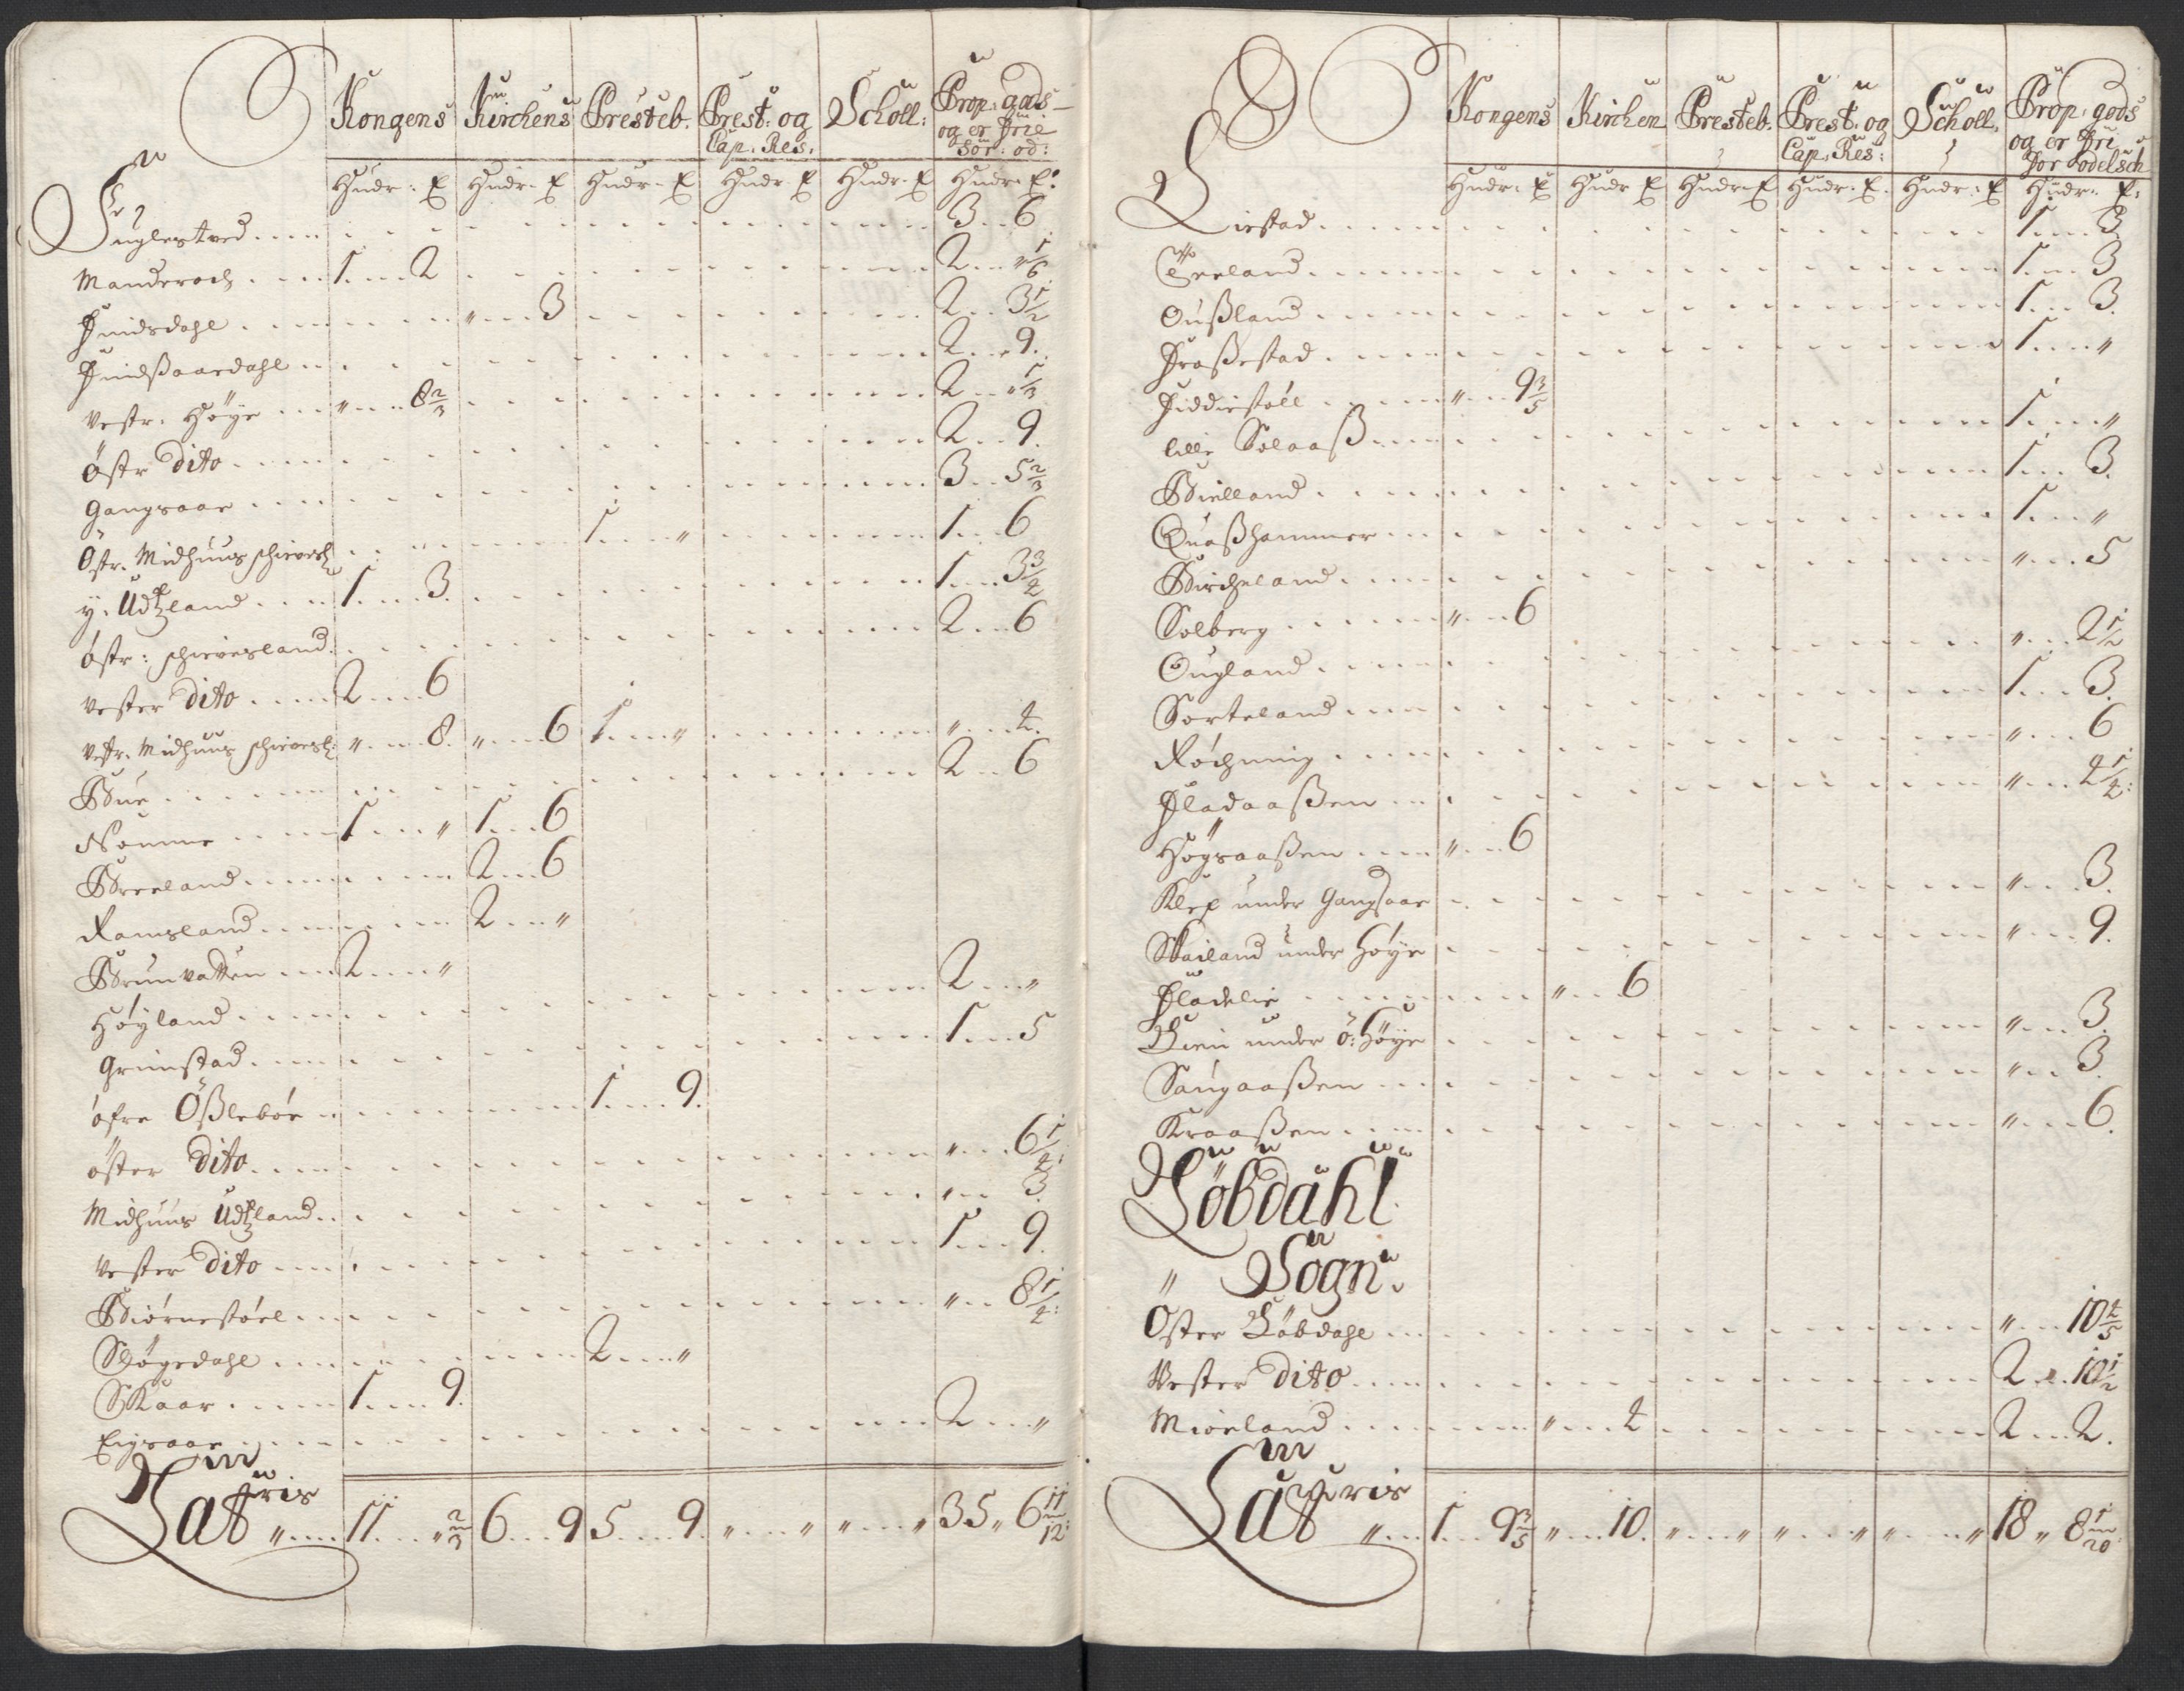 Kongens Kirchens Presteb. Prest: og Cap: Res: Scholl: Prop: gods og er frie for: od:
Hudr: E Hudr. E Hudr. E Hudr. E Hudr. E Hudr. E:
Fuglestved .... 3 .. 6
Manderoch .... 1 ... 2 .... 2 ... " 1/6
Huidsdahl .... " ... 3 .... 2 .. 3 1/2
Huidßaardahl .... 2 ... 9.
Vestr. Høye ... " ... 8 2/3 .... 2 ... " 1/3
Östr Dito .... 2 ... 9.
Gangsaar .... 3 .. 5 2/3
Östr. Midhuus schieversl .... 1 ... " .... 1 ... 6
y. Udtzland .... 1 ... 3. .... 1 ... 3 3/4
östr: schieversland .... 2 ... 6
Vester Dito .... 2 ... 6
Vestr. Midhuus schieversl: " ... 8. " ... 6 1 ... " .... " ... 4.
Bue .... 2 ... 6
Nomme .... 1 ... " 1 ... 6
Breeland .... 2 ... 6
Ramsland .... 2 ... "
Brunvatten ... 2 ... "
Høyland .... 2 ... "
Grimstad .... 1 ... 5
öfre Ößlebøe .... 1 ... 9.
öster Dito .... " ... 6 1/4:
Midhuus Udtzland .... " .. 3.
Vester Dito .... 1 ... 9.
Biörnestöel .... " .. 8 1/4:
Skøgedahl .... 2 ... "
Skaar .... 1 ... 9.
Eigsaar .... 2 ... "
Lateris " ... 11 ... " 2/3 6 ... 9 5 ... 9. " ... " " ... " 35 " 6 11/12:
Kongens Kirchen Presteb. Prest. og Cap. Res: Scholl. Prop: gods og er frie for Odelsch
Hudr. E Hudr E Hudr. E Hudr. E. Hudr.: E Hudr. E:
Liestad .... 1 ... 3.
Eeeland .... 1 ... 3
Oußland .... 1 ... 3.
Fraßestad .... 1 ... "
Fiddiestøll .... " ... 9 3/5
lille Solaaß .... 1 ... "
Bielland .... 1 ... 3.
Quaßhammer .... 1 ... "
Bircheland .... " ... 5
Solberg .... " ... 6
Ougland .... " ... 2 1/2
Sorteland .... 1 ... 3.
Røchning .... " ... 6
Fladaaßen .... " ... 4 1/4:
Høgsaaßen .... " ... 6
Klep under Gangsaar .... " ... 3.
Skailand under Høye .... " ... 9.
Fladelie .... " ... 6
Lien under ö: Høye .... " ... 3.
Saugaaßen .... " ... 3.
Kraaßen .... " ... 6.
Löbdahl
" Sogn.
Öster Löbdahl .... " ... 10 4/5
Vester Dito .... 2 ... 10 1/2
Mieland .... " ... 4 .... 2 ... 2.
Lateris " ... 1 ... 9 3/5 " ... 10. " ... " " ... " " ... " 18 " 8 1/20